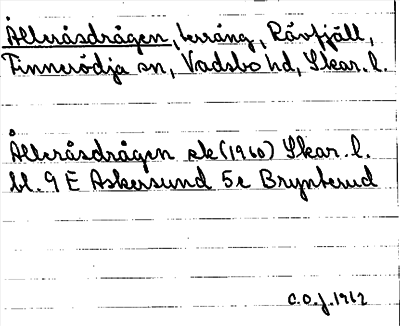 Ålleråsdrågen, terräng, Råvfjäll,
Finnerödja sn, Vadsbo hd, Skar. l.
Ålleråsdrågen ek (1960) Skar. l.
bl. 9 E Askersund 5e Brynterud
C.O.J. 1962